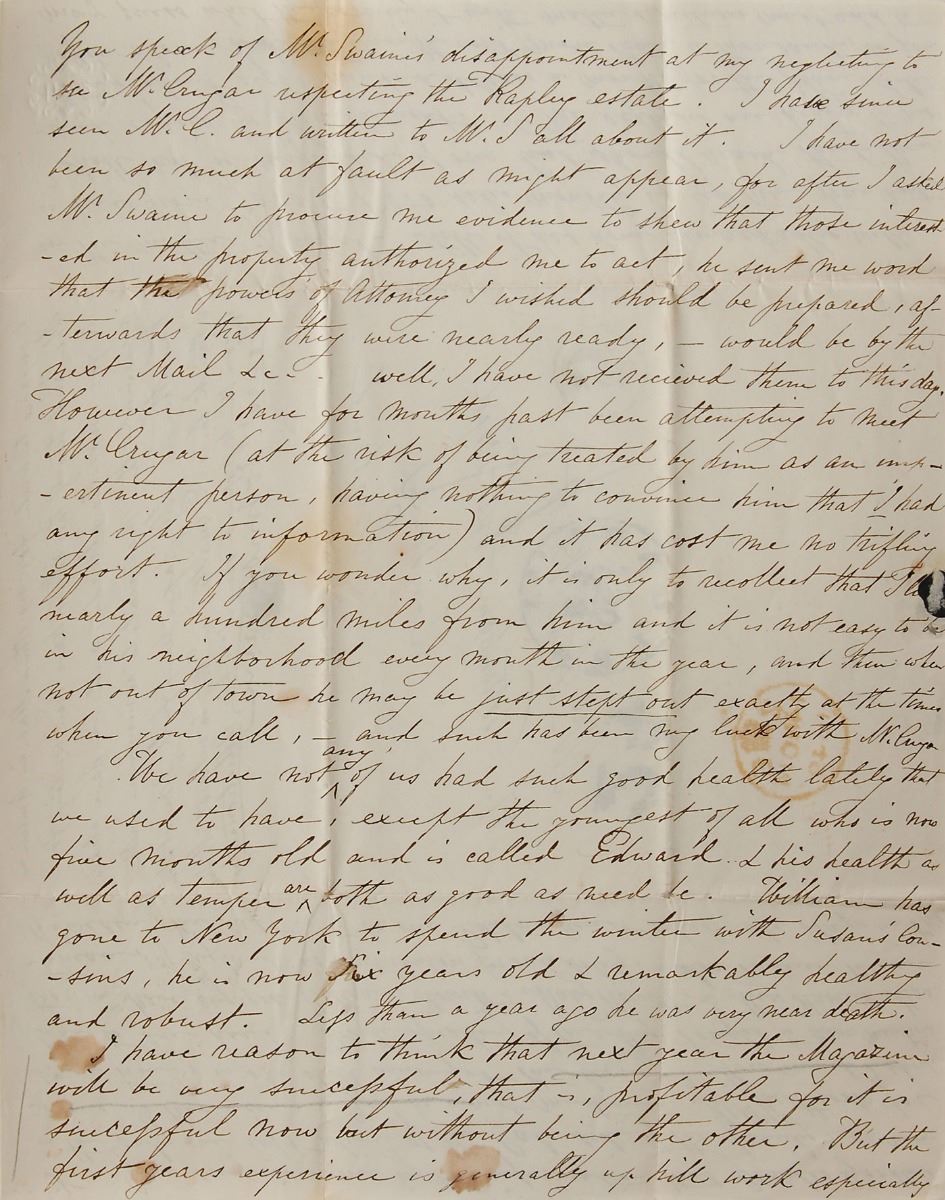 You speak of Mr. Swaine's disappointment at my neglecting to
see Mr. Crugar respecting the Rapley estate. I have since
seen Mr. C. and written to Mr. S all about it. I have not
been so much at fault as might appear, for after I asked
Mr. Swaine to procure me evidence to shew that those interest
-ed in the property authorized me to act, he sent me word
that the powers of Attorney I wished should be prepared, af-
-terwards that they were nearly ready, — would be by the
next Mail &c - well, I have not recieved them to this day.
However I have for months past been attempting to meet
Mr. Crugar (at the risk of being treated by him as an imp-
-ertinent person, having nothing to convince him that I had
any right to information) and it has cost me no trifling
effort. If you wonder why, it is only to recollect that I
nearly a hundred miles from him and it is not easy to be
in his neighborhood every month in the year, and then when
not out of town he may be just stept out exactly at the times
when you call, — and such has been my luck with Mr. Cruga
We have not any of us had such good health lately that
we used to have, except the youngest of all who is now
five months old and is called Edward & his health as
well as temper are both as good as need be. William has
gone to New York to spend the winter with Susan's Cou-
-sins, he is now Six years old & remarkably healthy
and robust. Less than a year ago he was very near death.
I have reason to think that next year the Magazine
will be very successful, that is, profitable for it is
successful now but without being the other. But the
first years experience is generally up hill work especially